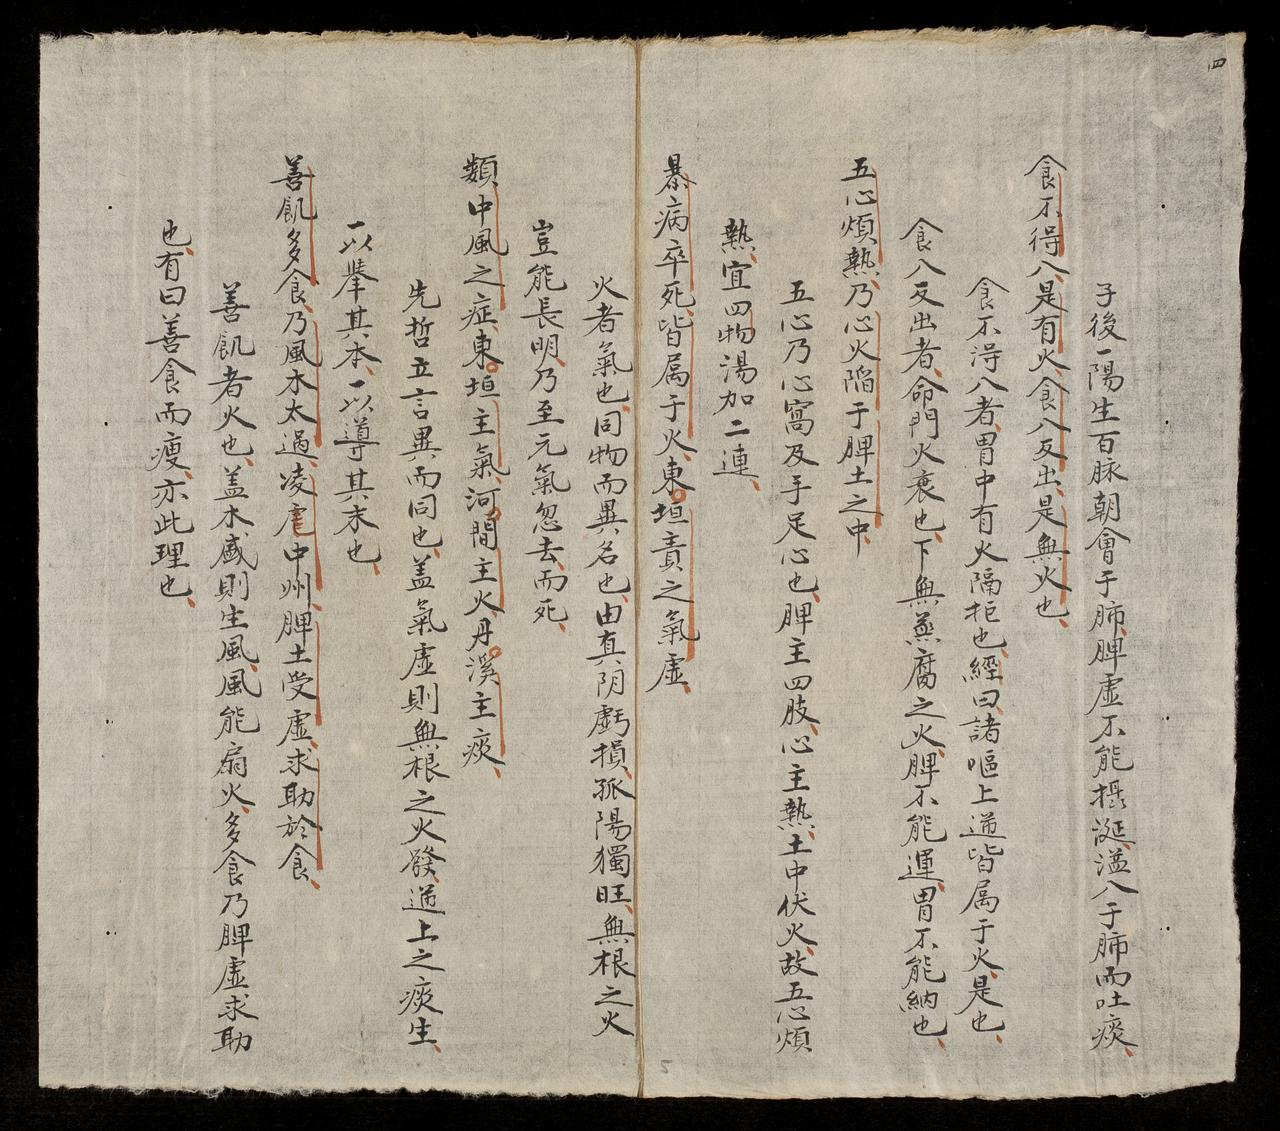 四
子後一陽生百脉朝會于肺脾虛不能摄涎溢入于肺而吐痰
食不得入是有火食入反出是無火也
食不得入者胃中有火隔拒也經曰諸嘔上逆皆属于火是也
食入反出者命門火衰也下無蒸腐之火脾不能運胃不能納也
五心煩熱乃心火陷于脾土之中
五心乃心窩及手足心也脾主四肢心主熱土中伏火故五心煩
熱宜四物湯加二連
暴病卒死皆属于火東垣責之氣虛
火者氣也同物而異名也由真阴虧損孤陽獨旺無根之火
豈能長明乃至元氣忽去而死
類中風之症東垣主氣河間主火丹溪主痰
先哲立言異而同也盖氣虛則無根之火發逆上之痰生
一以拏其本一以導其末也
善飢多食乃風木太過凌虐中州脾土受虛求助於食
善飢者火也盖木盛則生風風能扇火多食乃脾虛求助
也有曰善食而瘦亦此理也
2